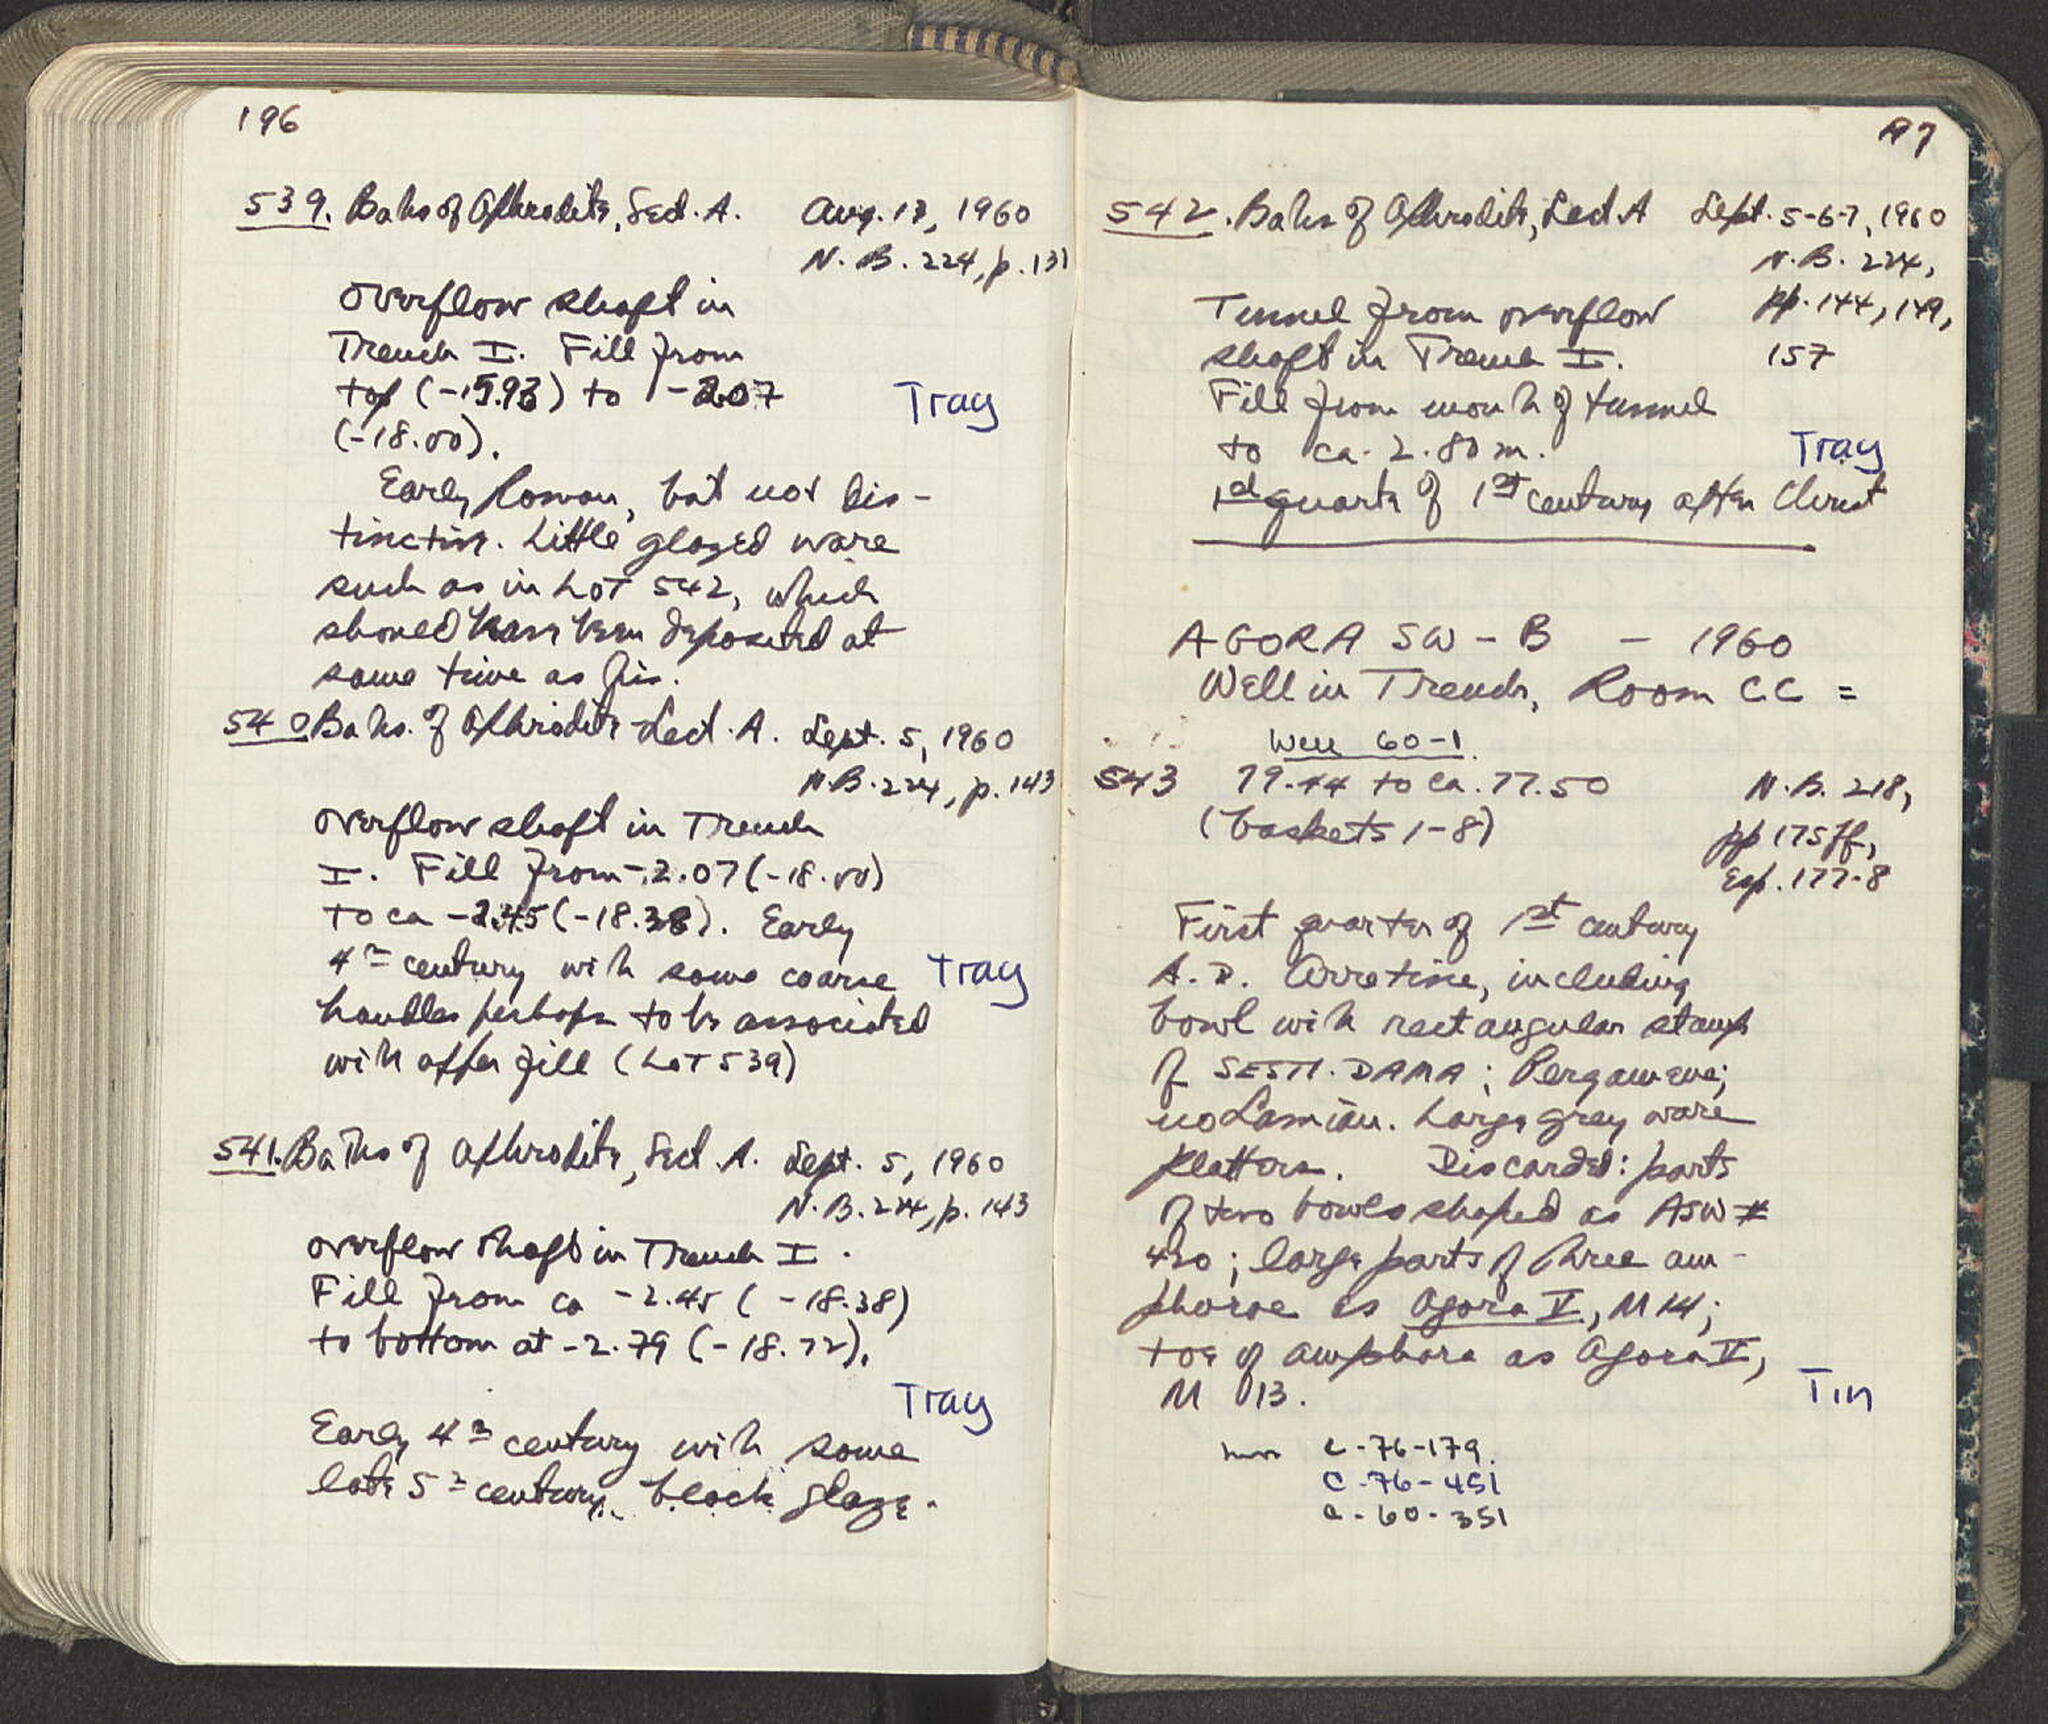 196
539. Baths of Aphrodite, Sect. A. Aug. 17, 1960
N.B. 224, p. 131
overflow shaft in
Trench I. Fill from
top (-15.93) to -2.07 Tray
(-18.00).
Early Roman, but not dis-
tinctive. Little glazed ware
such as in Lot 542, which
should have been deposited at
same time as this.
540 Baths. of Aphrodite - Sect. A. Sept. 5, 1960
N.B. 224, p. 143
overflow shaft in Trench
I. Fill from -2.07 (-18.00)
to ca -2.45 (-18.38). Early
4th century with some coarse Tray
handles perhaps to be associated
with upper fill (Lot 539)
541. Baths of Aphrodite, Sect. A. Sept. 5, 1960
N.B. 224, p. 143
overflow shaft in Trench I.
Fill from ca -2.45 (-18.38)
to bottom at -2.79 (-18.72).
Tray
Early 4th century with some
late 5th century black glaze.
197
542. Baths of Aphrodite, Sect. A Sept. 5-6-7, 1960
N.B. 224,
Tunnel from overflow pp. 144, 149,
shaft in Trench I. 157
Fill from mouth of tunnel
to ca. 2.80 m. Tray
quarter of 1st century after Christ
AGORA SW - B - 1960
Well in Trench, Room CC =
Well 60-1
543 79.44 to ca. 77.50 N.B. 218,
(baskets 1-8) pp 175ff,
Esp. 177-8
First quarter of 1st century
A.D. Arretine, including
bowl with rectangular stamp
of SESTI. DAMA; Pergamene;
no Samian. Large grey ware
platters. Discarded: parts
of two bowls shaped as ASW #
420; large parts of three am-
phorae as Agora V, M 14;
toe of amphora as Agora V,
M 13. Tin
C-76-179.
C-76-451
C-60-351